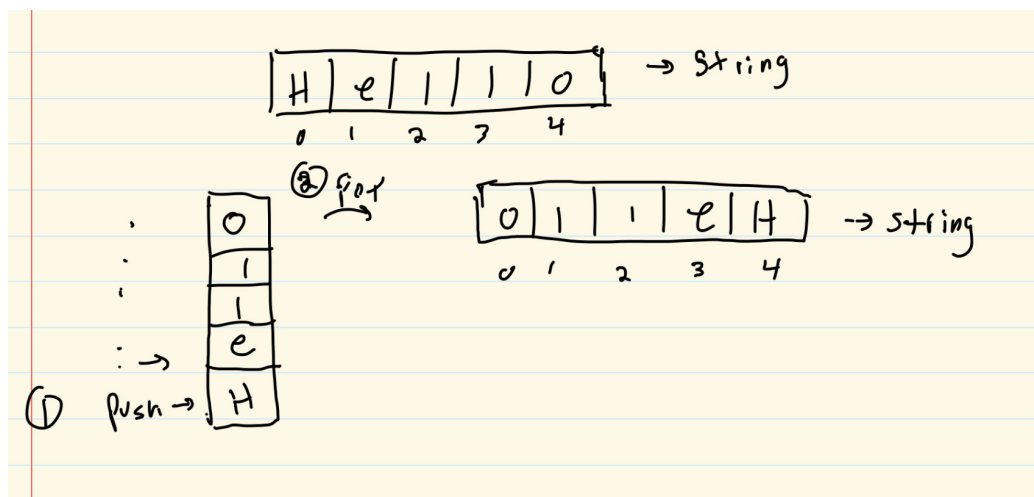 H e l l o → String
0 1 2 3 4
② pop
o l l e H → string
0 1 2 3 4
o
l
l
e
① push → H